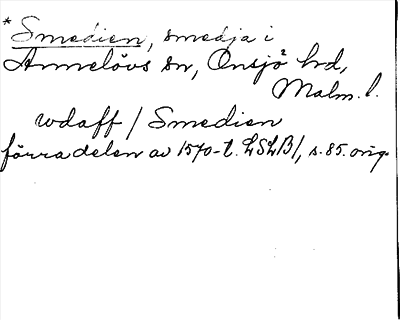 *Smedien, smedja i
Annelövs sn, Onsjö hd,
Malm. l.
wdaff / Smedien
förra delen av 1570-t. LSLB/, s. 85. orig.